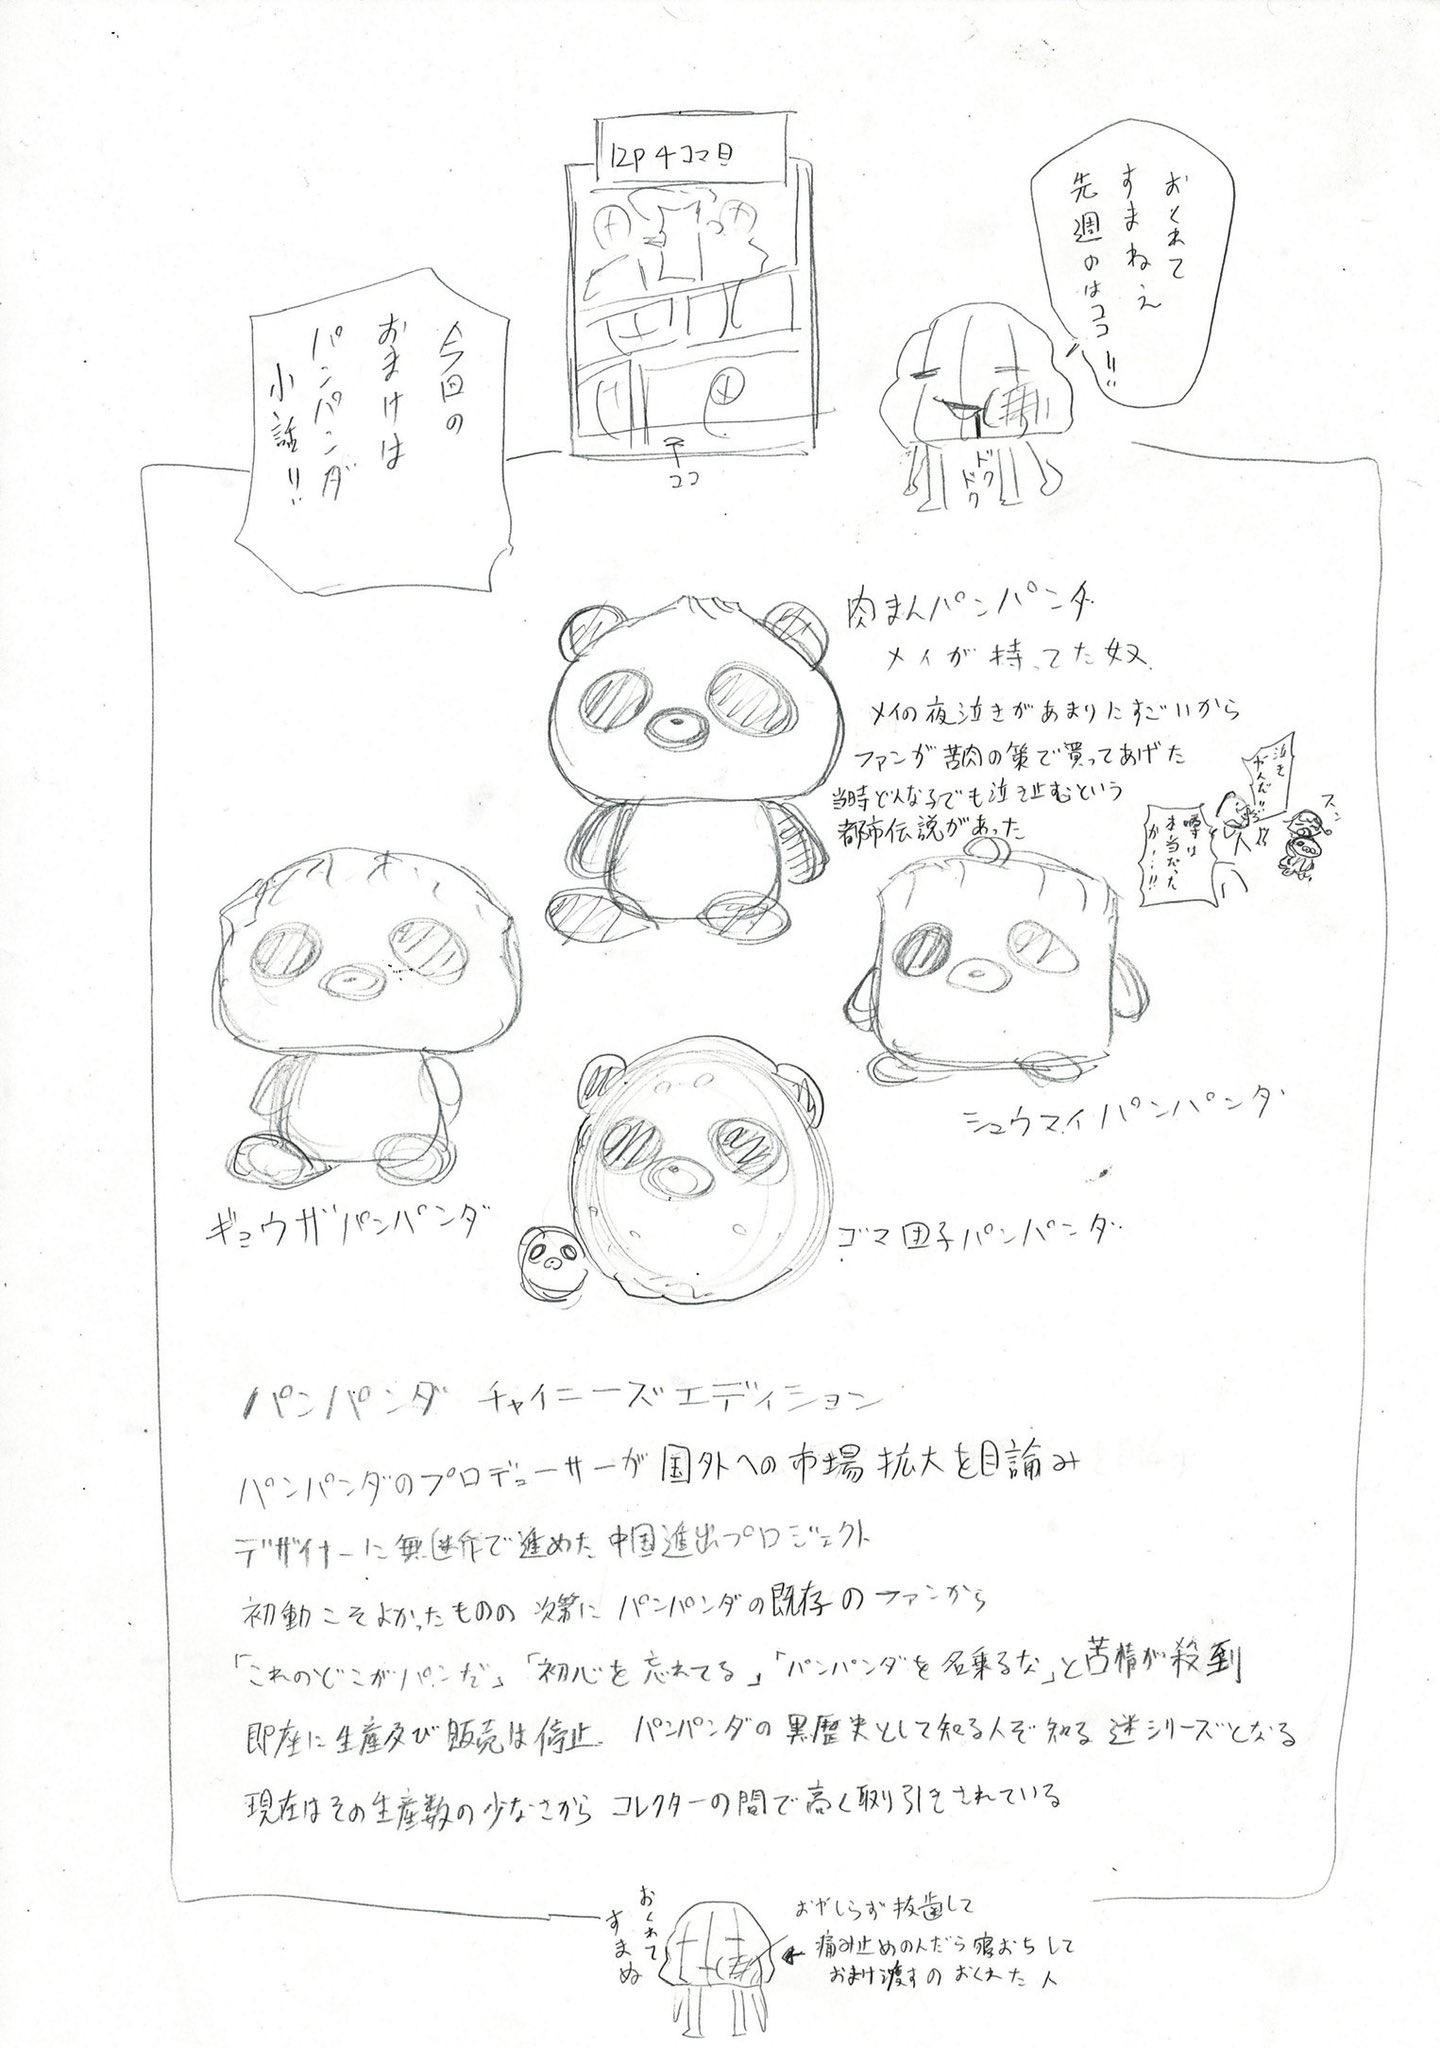 おくれて
すまねえ
先週のはココ!!
12P4コマ目
ココ
ドク
ドク
今回の
おまけは
パンパンダ
小話!!
肉まんパンパンダ
メイが持ってた奴
メイの夜泣きがあまりにすごいから
ファンが苦肉の策で買ってあげた
当時どんな子でも泣き止むという
都市伝説があった
泣き
やんだ!!
噂は
本当だった
か…!!
スン
ギョウザパンパンダ
シュウマイパンパンダ
ゴマ団子パンパンダ
パンパンダ チャイニーズエディション
パンパンダのプロデューサーが国外への市場拡大を目論み
デザイナーに無断で進めた中国進出プロジェクト
初動こそよかったものの次第にパンパンダの既存のファンから
「これのどこがパンだ」「初心を忘れてる」「パンパンダを名乗るな」と苦情が殺到
即座に生産及び販売は停止 パンパンダの黒歴史として知る人ぞ知る迷シリーズとなる
現在はその生産数の少なさからコレクターの間で高く取り引きされている
おくれて
すまぬ
おやしらず抜歯して
痛み止めのんだら寝おちして
おまけ渡すのおくれた人